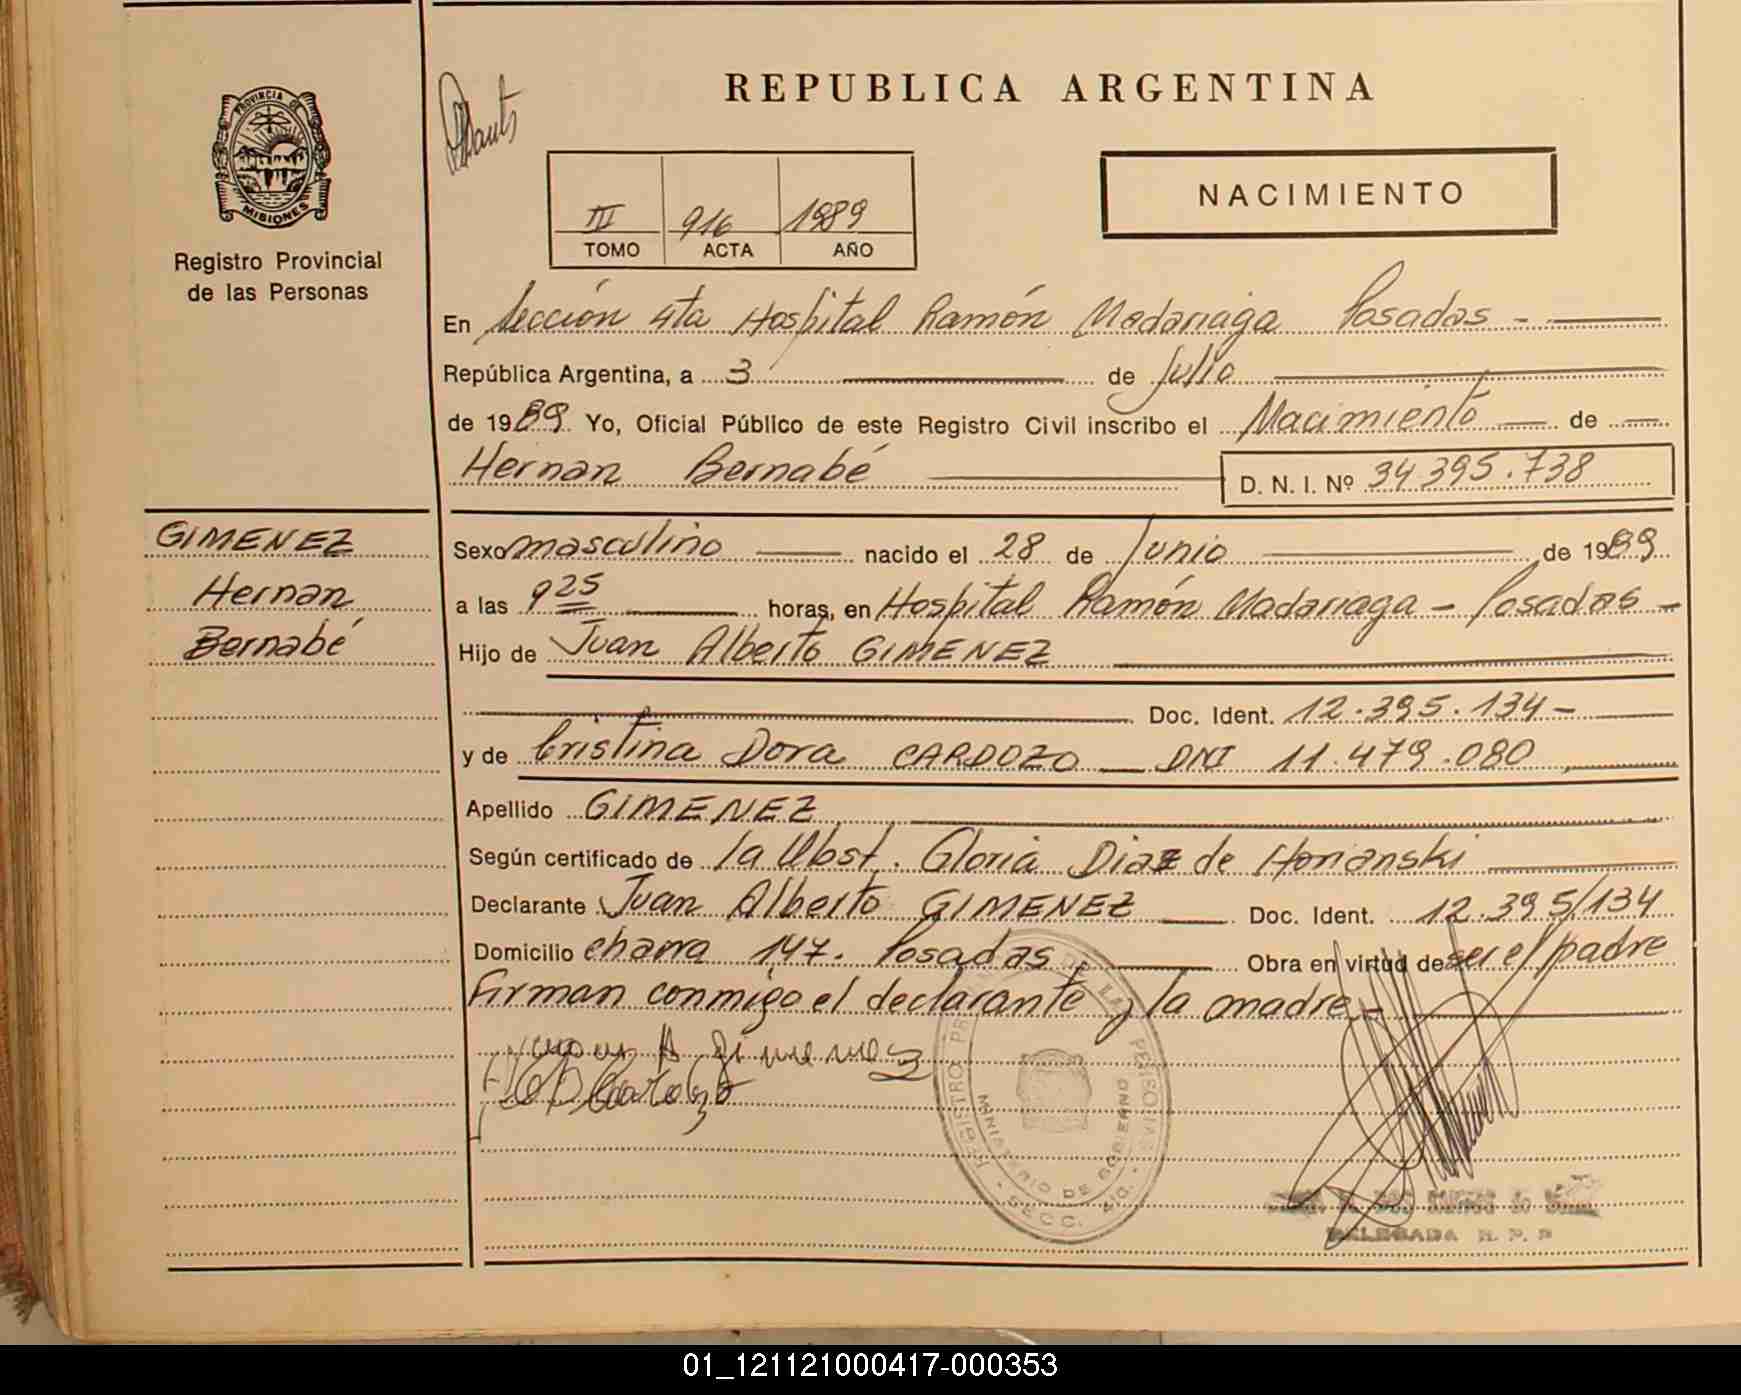 PROVINCIA DE
MISIONES
Registro Provincial
de las Personas
REPUBLICA ARGENTINA
NACIMIENTO
III 916 1989
TOMO ACTA AÑO
En Sección 4ta Hospital Ramón Madariaga Posadas -
República Argentina, a 3 de Julio
de 1989 Yo, Oficial Público de este Registro Civil inscribo el Nacimiento de
Hernan Bernabé D. N. I. Nº 34 395.738
GIMENEZ
Hernan
Bernabé
Sexo masculino nacido el 28 de Junio de 1989
a las 9 25 horas, en Hospital Ramón Madariaga - Posadas -
Hijo de Juan Alberto GIMENEZ
Doc. Ident. 12.395.134-
y de Cristina Dora CARDOZO DNI 11.479.080
Apellido GIMENEZ
Según certificado de la Obst. Gloria Diaz de Horianski
Declarante Juan Alberto GIMENEZ Doc. Ident. 12.395/134
Domicilio charra 147. Posadas Obra en virtud de ser el padre
Firman conmigo el declarante y la madre.-
MINISTERIO DE GOBIERNO
DELEGADA R. P. P
01_121121000417-000353